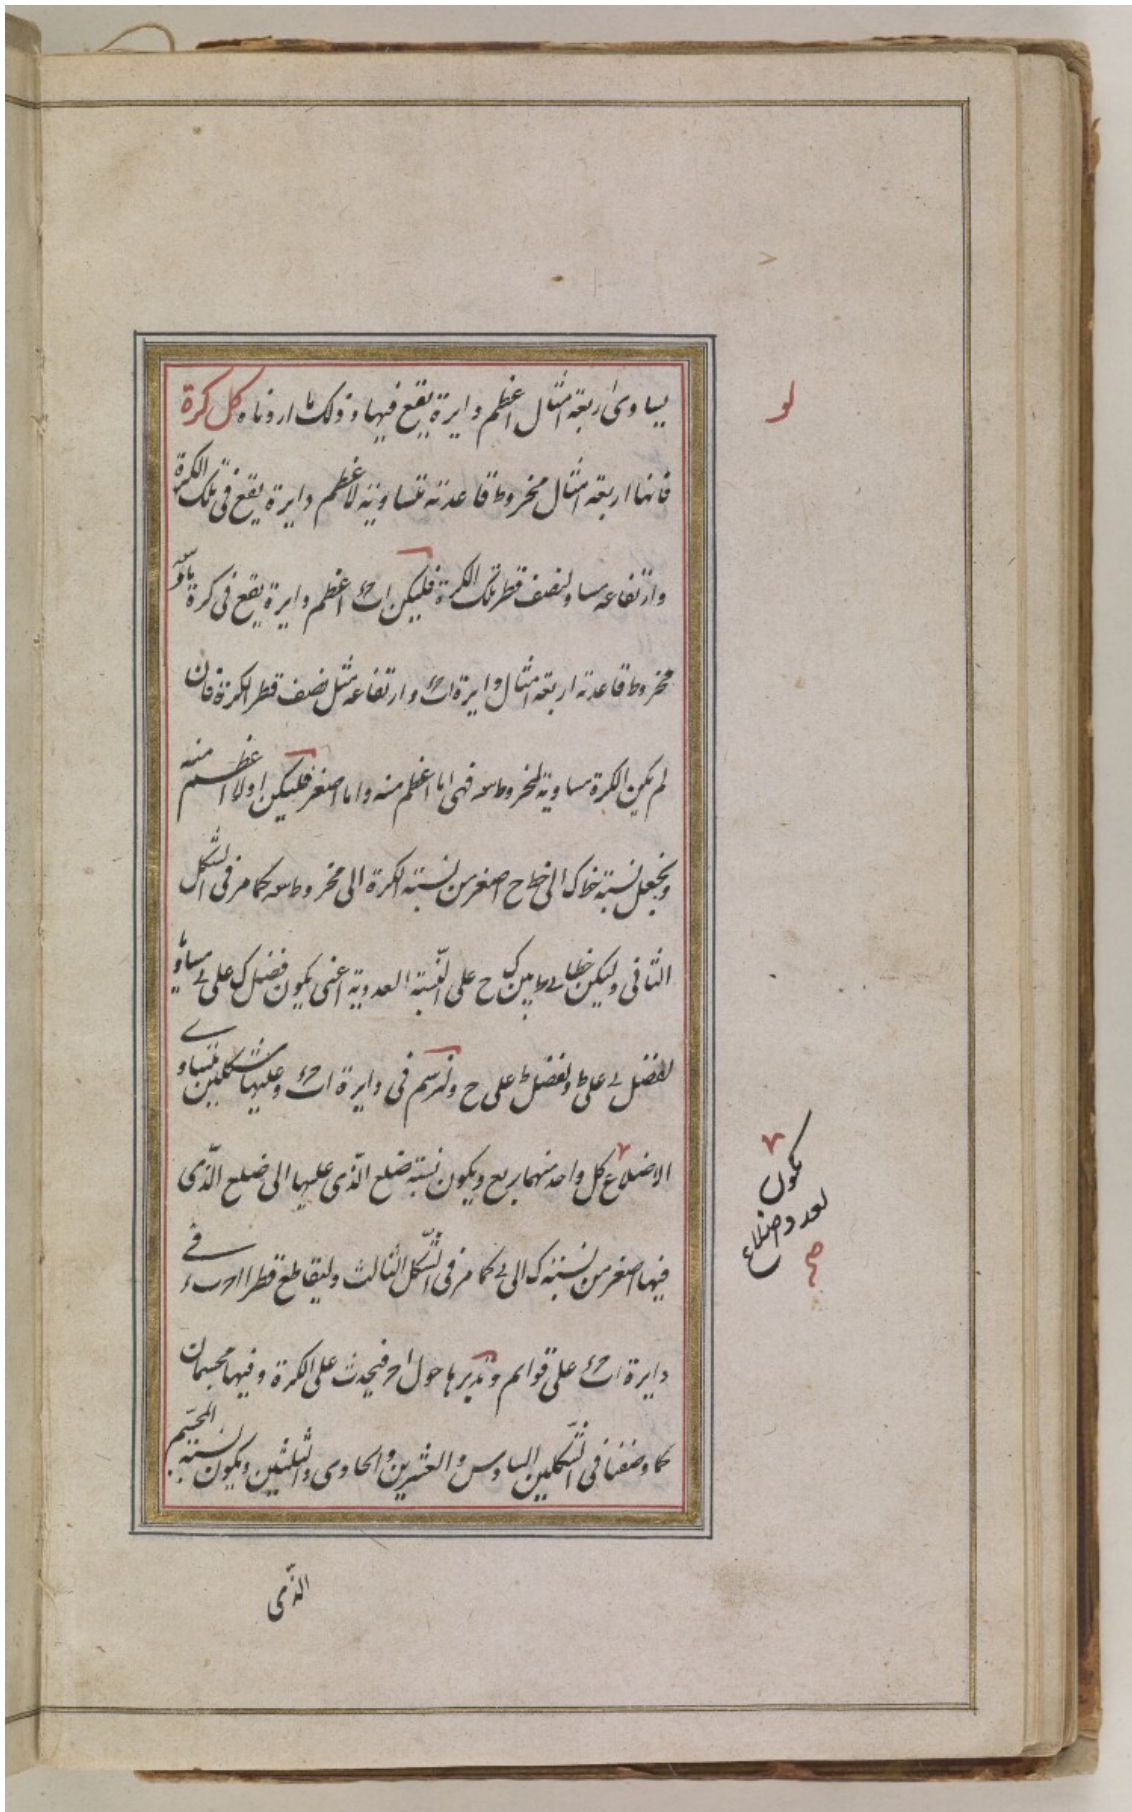 لو
يساوى اربعة امثال اعظم دايرة يقع فيها و ذلك ما اردناه كل كرة
فانها اربعة امثال مخروط قاعدته متساوية لاعظم دايرة يقع فى تلك الكرة
وارتفاعه مساو لنصف قطر تلك الكرة فليكن ا ب ح ء اعظم دايرة يقع فى كرة ما و
مخروط قاعدته اربعة امثال دايرة ا ب ح ء و ارتفاعه مثل نصف قطر الكرة فان
لم يكن الكرة مساوية لمخروط سه فهى اما اعظم منه واما اصغر فليكن اولا اعظم منه
ونجعل نسبة خط ك الى خط ح اصغر من نسبة الكرة الى مخروط سه كما مر فى الشكل
الثانى وليكن خطا ى ط بين ك ح على النسبة العددية اعنى يكون فضل ك على ى مساويا
لفضل ى على ط و لفضل ط على ح ونرسم فى دايرة ا ب ح ء وعليها شكلين متساوى
الاضلاع كل واحد منهما ربع ويكون نسبة ضلع الذى عليها الى ضلع الذى
فيها اصغر من نسبة ك الى ى كما مر فى الشكل الثالث وليتقاطع قطرا ا ح ب ء فى
دايرة ا ب ح ء على قوائم و نديرها حول ا ح فيحدث على الكرة و فيها مجسمان
كما وصفنا فى الشكلين السادس والعشرين والحادى والثلثين ويكون نسبة المجسم
يكون
لعدد اضلاع
صح
الذى